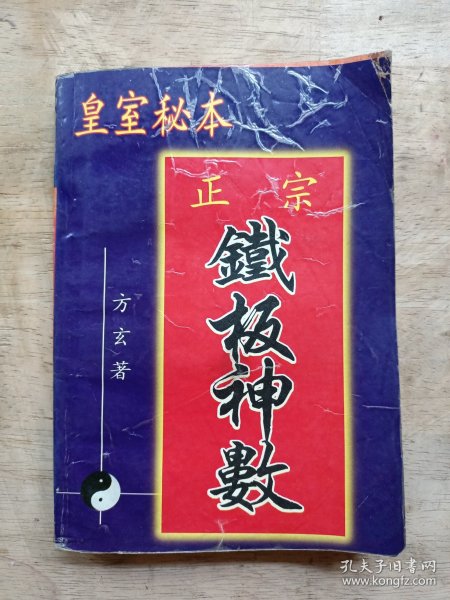 皇室秘本
正宗
鐵板神數
方玄著
孔夫子旧书网
www.kongfz.com